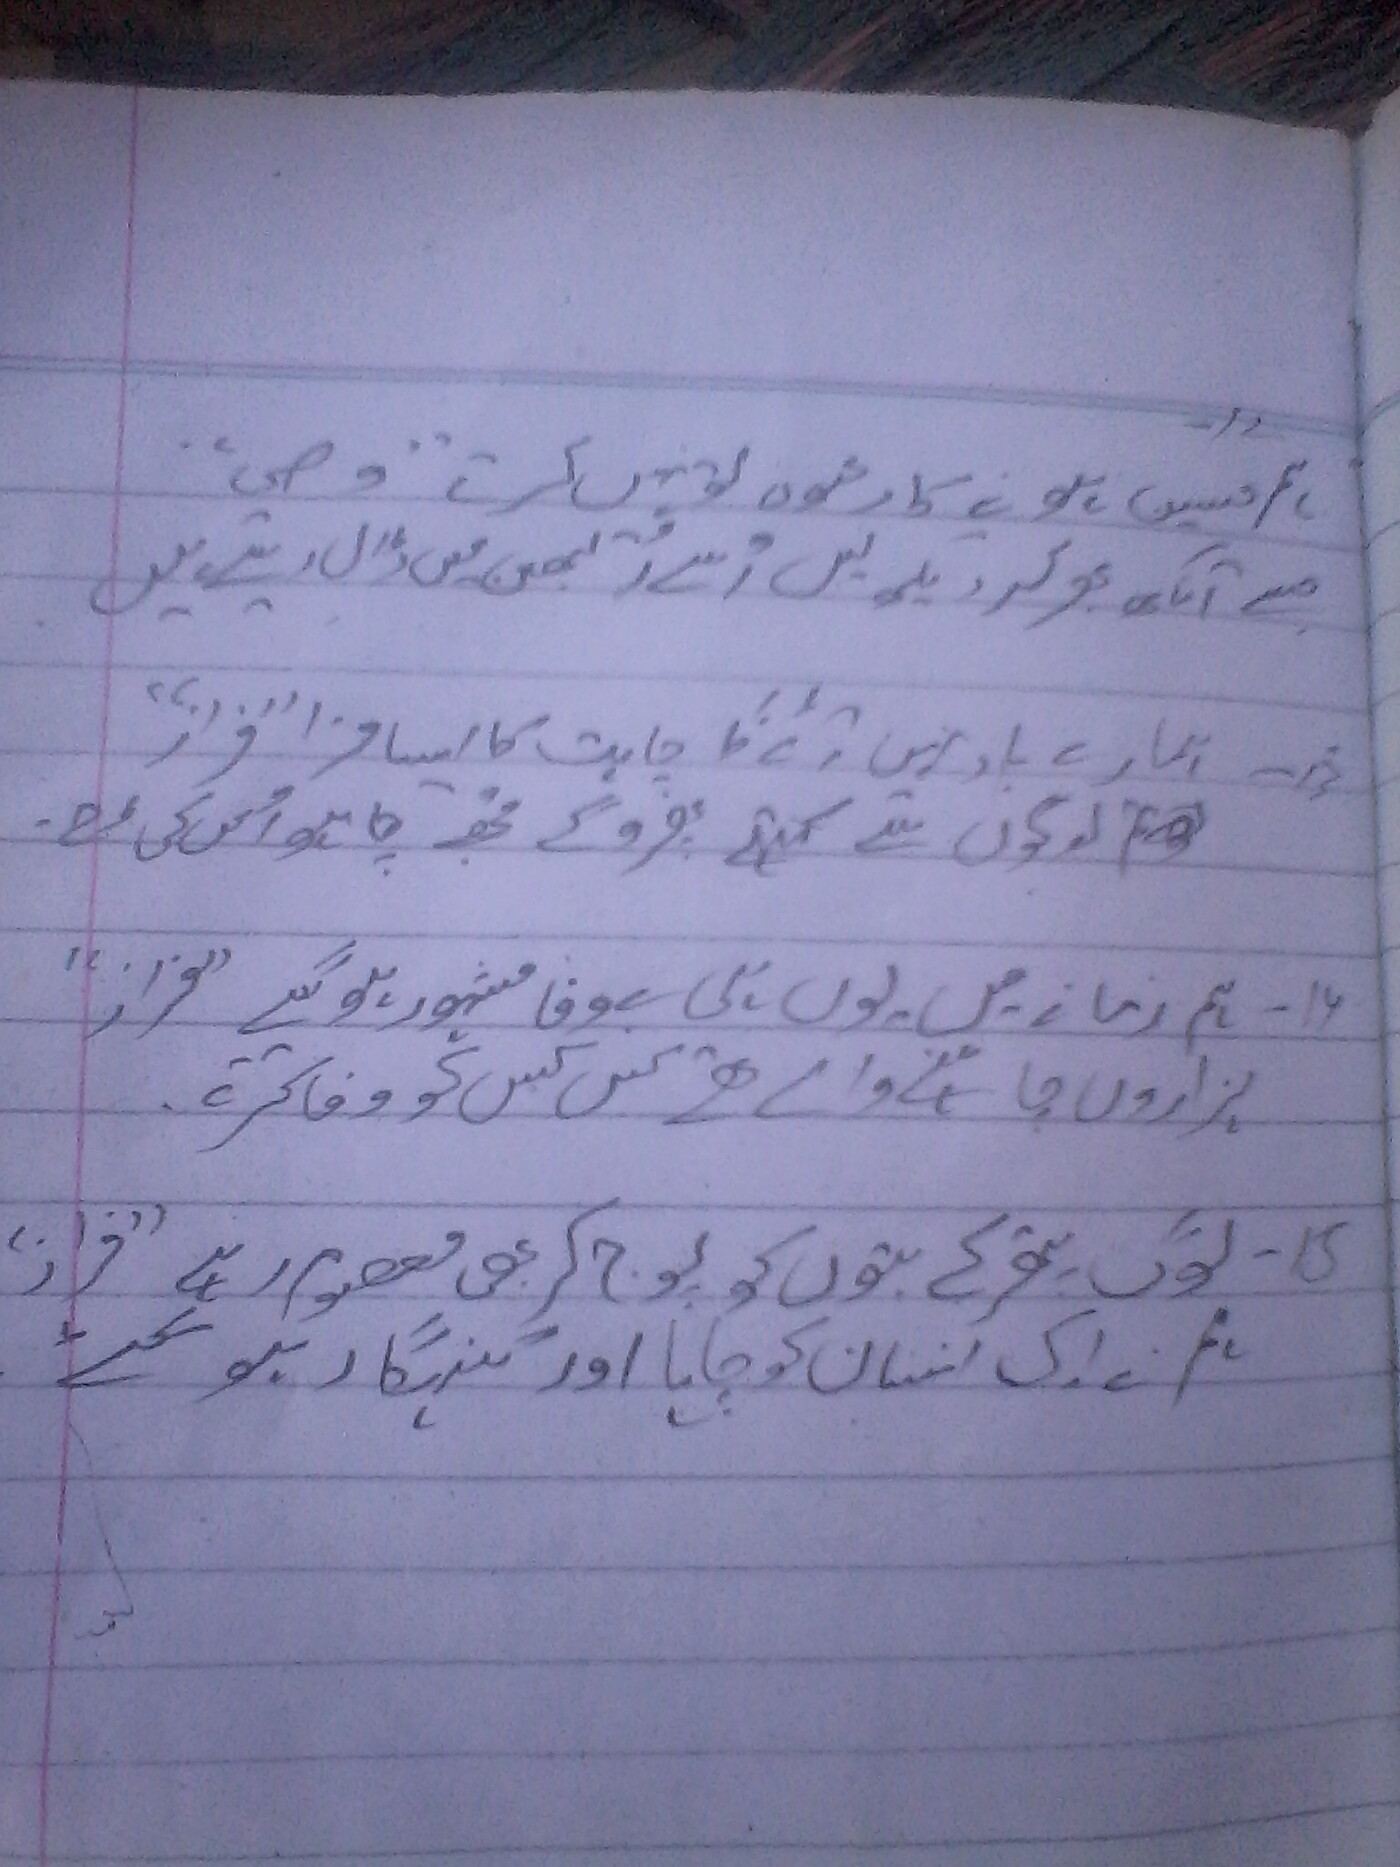 12-
ہم حسین ہونے کا دعویٰ تو نہیں کرتے "وصی"
جسے آنکھ بھر کر دیکھ لیں اُسے اُلجھن میں ڈال دیتے ہیں
13- ہمارے بعد نہیں آئے گا چاہت کا ایسا مزا "فراز"
تم لوگوں سے کہتے پھرو گے مجھے چاہو اُس کی طرح۔
14- ہم زمانے میں یوں ہی بے وفا مشہور ہو گئے "فراز"
ہزاروں چاہنے والے تھے کس کس کو وفا کرتے۔
15- لوگ پتھر کے بتوں کو پوج کر بھی معصوم رہے "فراز"
ہم نے اک انسان کو چاہا اور گنہگار ہو گئے